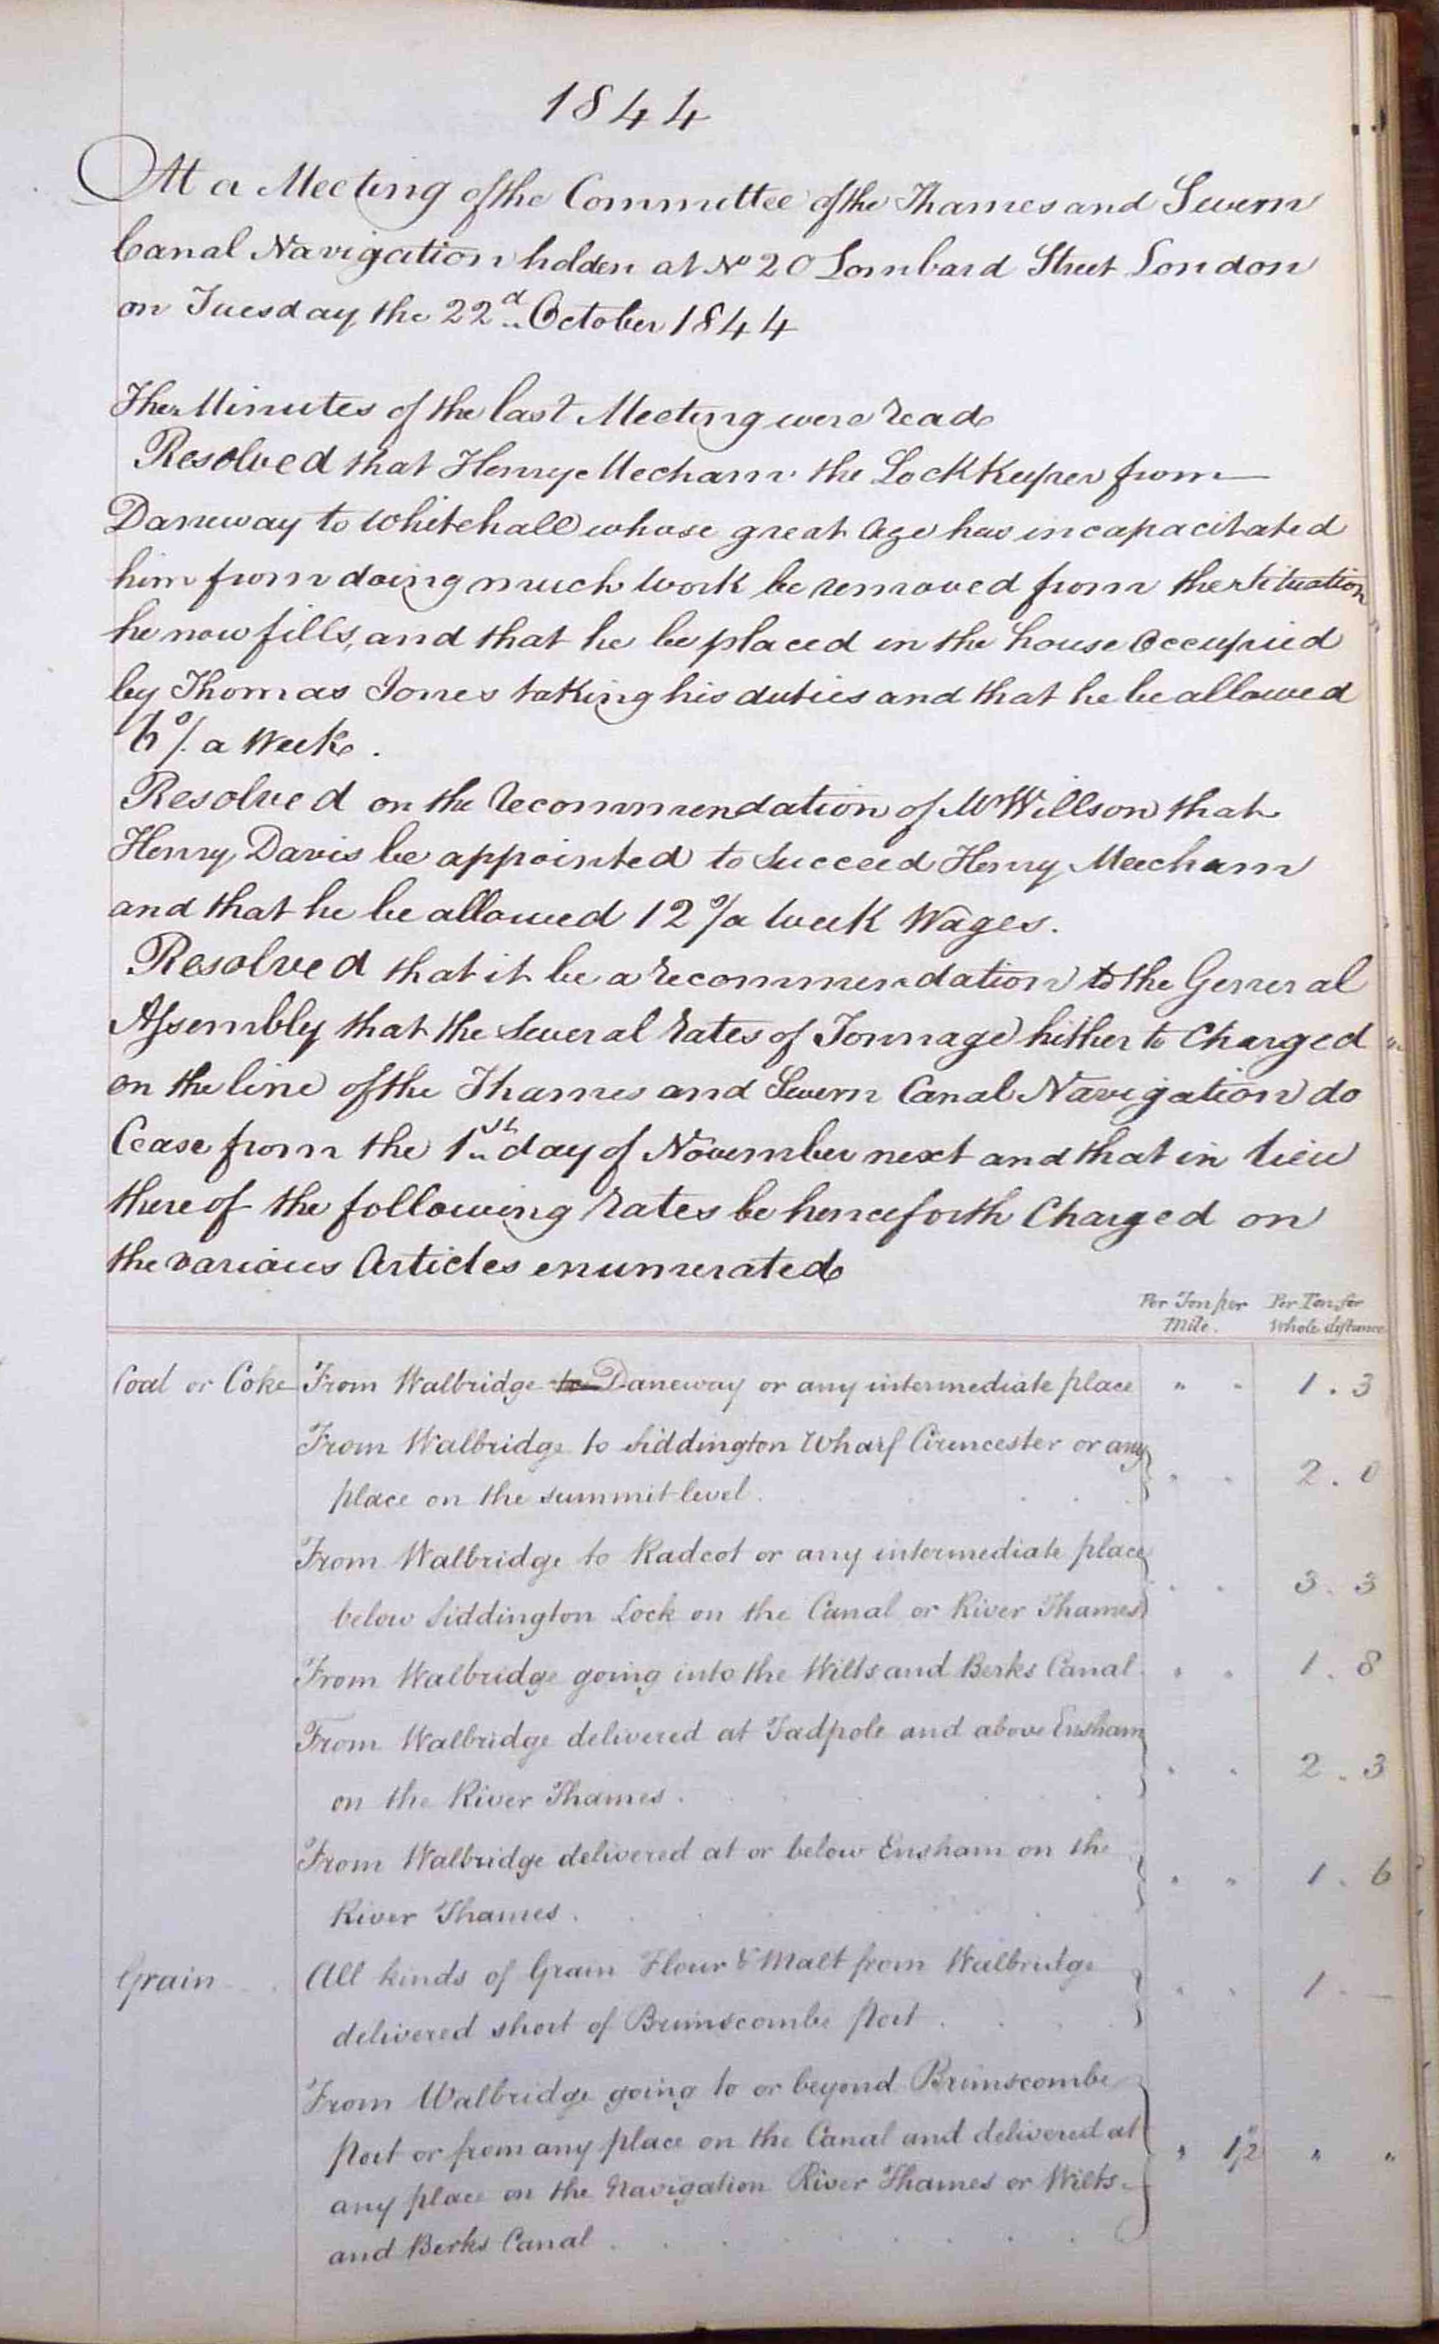 1844
At a Meeting of the Committee of the Thames and Severn
Canal Navigation holden at No 20 Lombard Street London
on Tuesday the 22d October 1844
The Minutes of the last Meeting were read
Resolved that Henry Mecham the Lock Keeper from
Daneway to Whitehall whose great Age has incapacitated
him from doing much work be removed from the situation
he now fills, and that he be placed in the house Occupied
by Thomas Jones taking his duties and that he be allowed
6/. a Week.
Resolved on the recommendation of Mr Willson that
Henry Davis be appointed to succeed Henry Meecham
and that he be allowed 12/ a week Wages.
Resolved that it be a recommendation to the General
Assembly that the several rates of Tonnage hitherto Charged
on the line of the Thames and Severn Canal Navigation do
Cease from the 1st day of November next and that in lieu
thereof the following rates be henceforth Charged on
the various Articles enumerated
Per Ton per Mile. Per Ton for Whole distance
Coal or Coke From Walbridge to Daneway or any intermediate place " " 1 . 3
From Walbridge to Siddington Wharf Cirencester or any
place on the summit level . " " 2 . 0
From Walbridge to Radcot or any intermediate place
below Siddington Lock on the Canal or River Thames " " 3 . 3
From Walbridge going into the Wilts and Berks Canal " " 1 . 8
From Walbridge delivered at Tadpole and above Ensham
on the River Thames . " " 2 . 3
From Walbridge delivered at or below Ensham on the
River Thames . " " 1 . 6
Grain All kinds of Grain Flour & Malt from Walbridge
delivered short of Brimscombe Port . " " 1 . —
From Walbridge going to or beyond Brimscombe
Port or from any place on the Canal and delivered at
any place on the Navigation River Thames or Wilts
and Berks Canal . " 1/2 " "